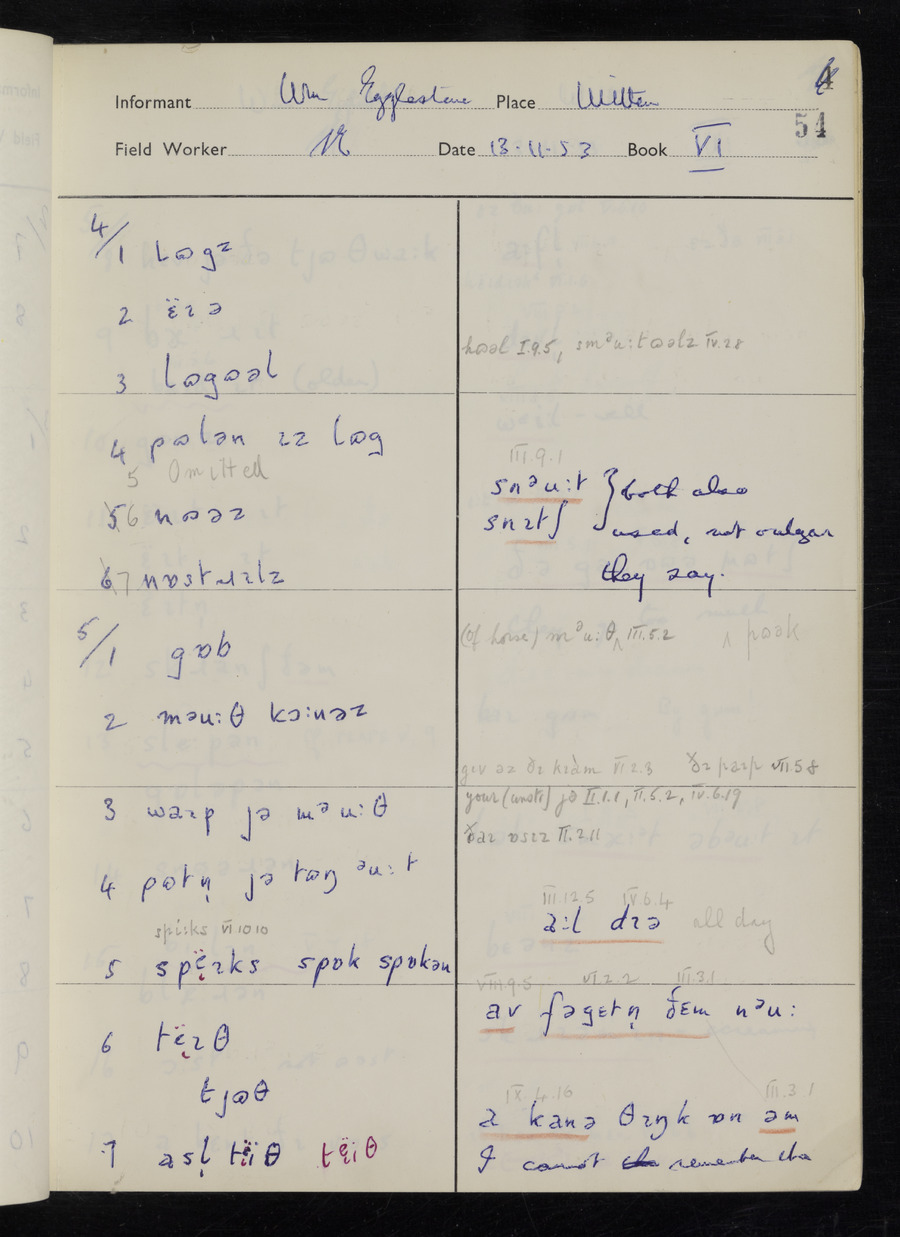 4
54
Informant Wm Egglestone Place Witton
Field Worker Date 13-11-53 Book VI
4/1 lɷgz
2 ë̈ɪə
3 lɷgɷəl
hɷəl I.9.5, smᵊu:tɷəlz IV.28
4 pɷlən ɪz lɷg
5 Omitted
III.9.1
56 nɷəz
snᵊu:t } both also
snɪtʃ used, not vulgar
67 nɒstɹɪlz
they say.
5/1 gɒb
(of horse) mᵊu:θ III.5.2 pɷək
2 məu:θ kɔ:nəz
gɪv əz ðɪ VI.2.3 VII.5 8
3 waɪp jə mᵊu:θ
your (unstr) jə II.1.1, II.5.2, IV.6.19
II.2.11
4 pɷtn̩ jə tɷŋ ᵊu:t
III.12.5 IV.6.4
a:l dɪə all day
spiəks VI 10 10
5 spë̈ɪks spɒk spɒkən
VIII.9.5 VI.2.2 III.3.1
av fəgɛtn̩ ðɛm nəu:
6 të̈ɪθ
tjɷθ
IX.4.16 III.3 1
7 asl̩ të̈iθ të̈iθ
a kanə θɪŋk ɒn əm
I cannot remember the